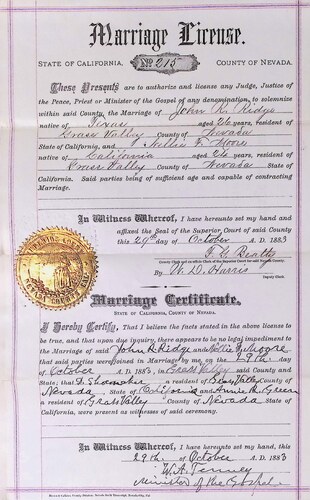 Marriage License.
STATE OF CALIFORNIA. No. 215 COUNTY OF NEVADA.
These Presents are to authorize and license any Judge, Justice of
the Peace, Priest or Minister of the Gospel of any denomination, to solemnize
within said County, the Marriage of John R. Ridge
native of Texas aged 26 years, resident of
Grass Valley County of Nevada
State of California, and Nellie F. Moore
native of California aged 26 years, resident of
Grass Valley County of Nevada State of
California. Said parties being of sufficient age and capable of contracting
Marriage.
In Witness Whereof, I have hereunto set my hand and
affixed the Seal of the Superior Court of said County
this 29th day of October A. D. 1883
F. G. Beatty
By W. D. Harris
Deputy Clerk.
Marriage Certificate.
STATE OF CALIFORNIA, COUNTY OF NEVADA.
I Hereby Certify, That I believe the facts stated in the above license to
be true, and that upon due inquiry, there appears to be no legal impediment to
the Marriage of said John R Ridge and Nellie F Moore
that said parties were joined in Marriage by me, on the 29th day
of October A. D. 1883, in Grass Valley said County and
State; that D. a resident of Grass Valley County of
Nevada State of California and Annie R. Green
a resident of Grass Valley County of Nevada State of
California, were present as witnesses of said ceremony.
In Witness Whereof, I have hereunto set my hand, this
29th day of October A. D. 1883
W. A. Tenney
Minister of the Gospel